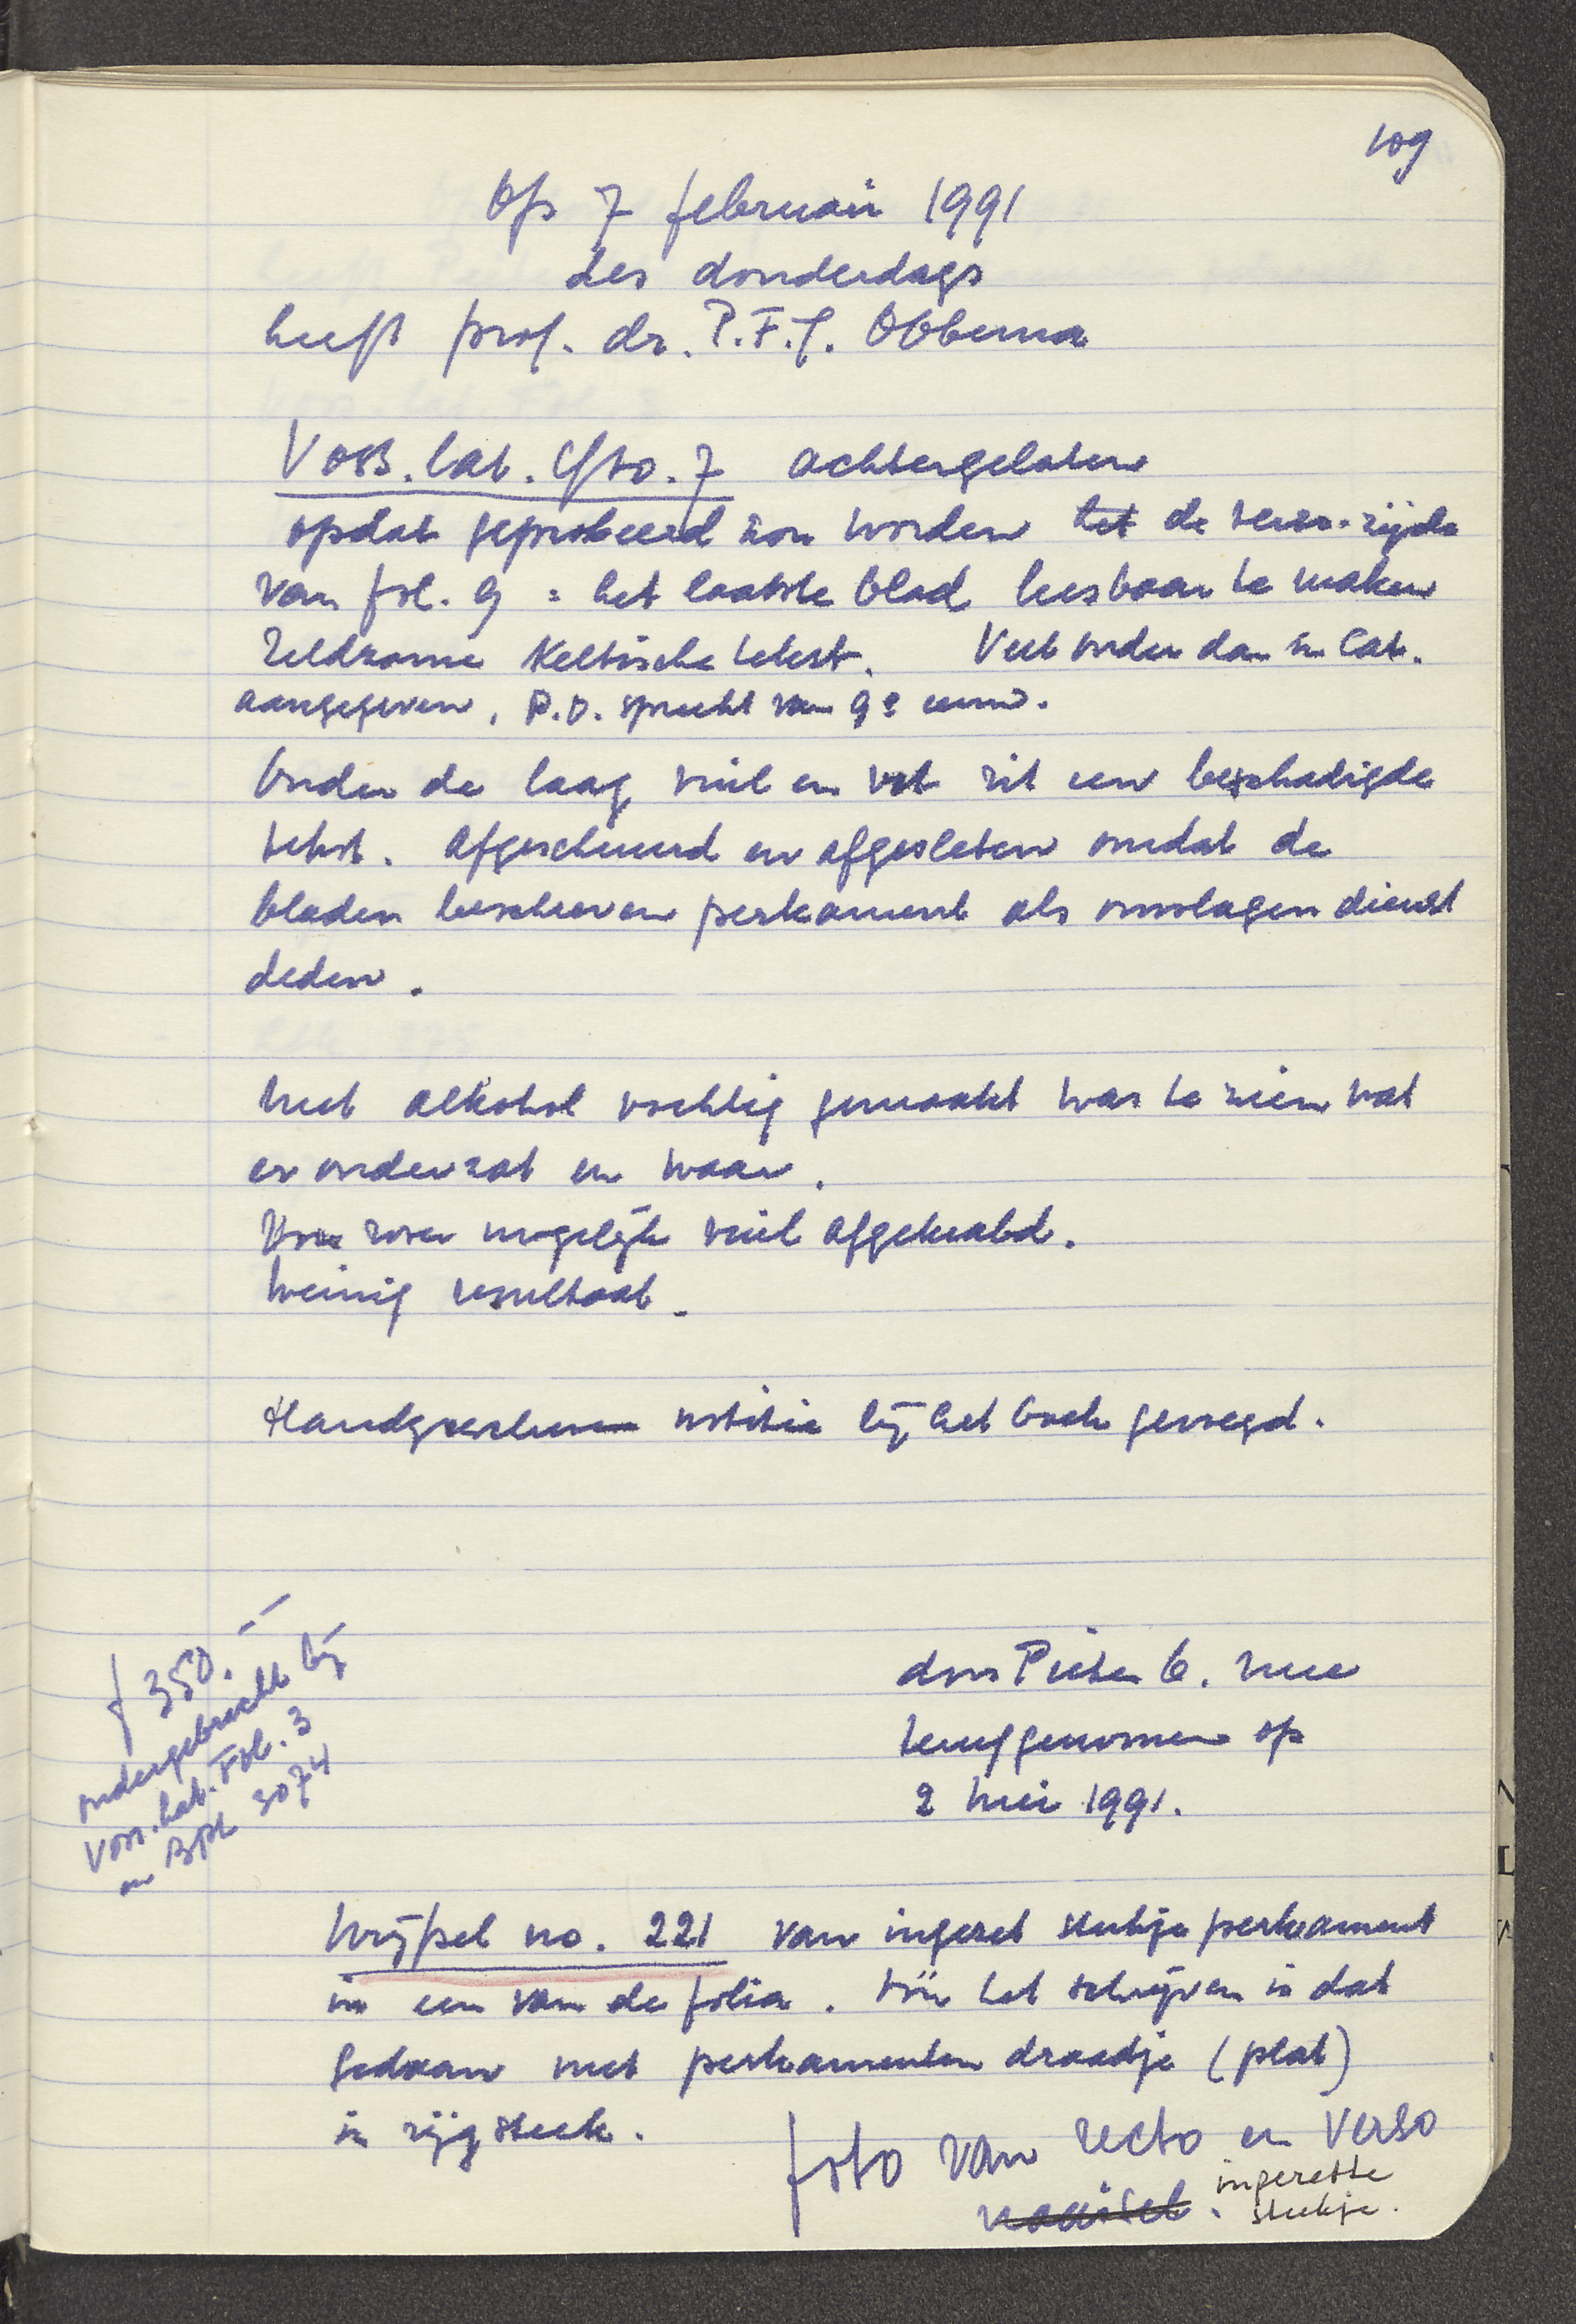 109
Op 7 februari 1991
des donderdags
heeft prof. dr. P.F.J. Obbema
Voss. lat. Qto. 7 achtergelaten
opdat geprobeerd zou worden het de verso-zijde
van fol. 9 = het laatste blad leesbaar te maken
Zeldzame Keltische tekst. Veel ouder dan in Cat.
aangegeven. P.O. spreekt van 9e eeuw.
Onder de laag vuil en vet zit een beschadigde
tekst. Afgescheurd en afgesleten omdat de
bladen beschreven perkament als omslagen dienst
deden.
Met alkohol vochtig gemaakt was te zien wat
er onder zat en waar.
Voor zover mogelijk vuil afgekrabd.
Weinig resultaat.
Handgeschreven notitie bij het boek gevoegd.
f 350.--
ondergebracht bij
Voss. lat. Fol. 3
en BPL 3074
door Pieter O. mee
teruggenomen op
2 Mei 1991.
Wrijfsel no. 221 van ingezet stukje perkament
in een van de folia. Vóór het schrijven is dat
gedaan met perkamenten draadje (plat)
in rijgsteek.
foto van recto en verso
naaisel. ingezette
stukje.